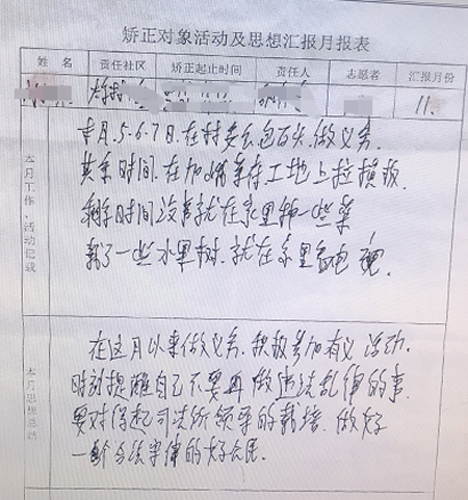 矫正对象活动及思想汇报月报表
姓名 责任社区 矫正起止时间 责任人 志愿者 汇报月份
11.
本月工作、活动记载
本月.5.6.7日.在村委会包石头.做义务.
其余时间.在加 工地上拉损板.
剩余时间没事就在家里种一些菜
栽了一些水果树.就在家里看电视.
本月思想总结
在这月以来做义务.积极参加有义活动.
时刻提醒自己不要再做违法乱律的事.
要对得起司法所领导的栽培.做好
一个合法守律的好公民.